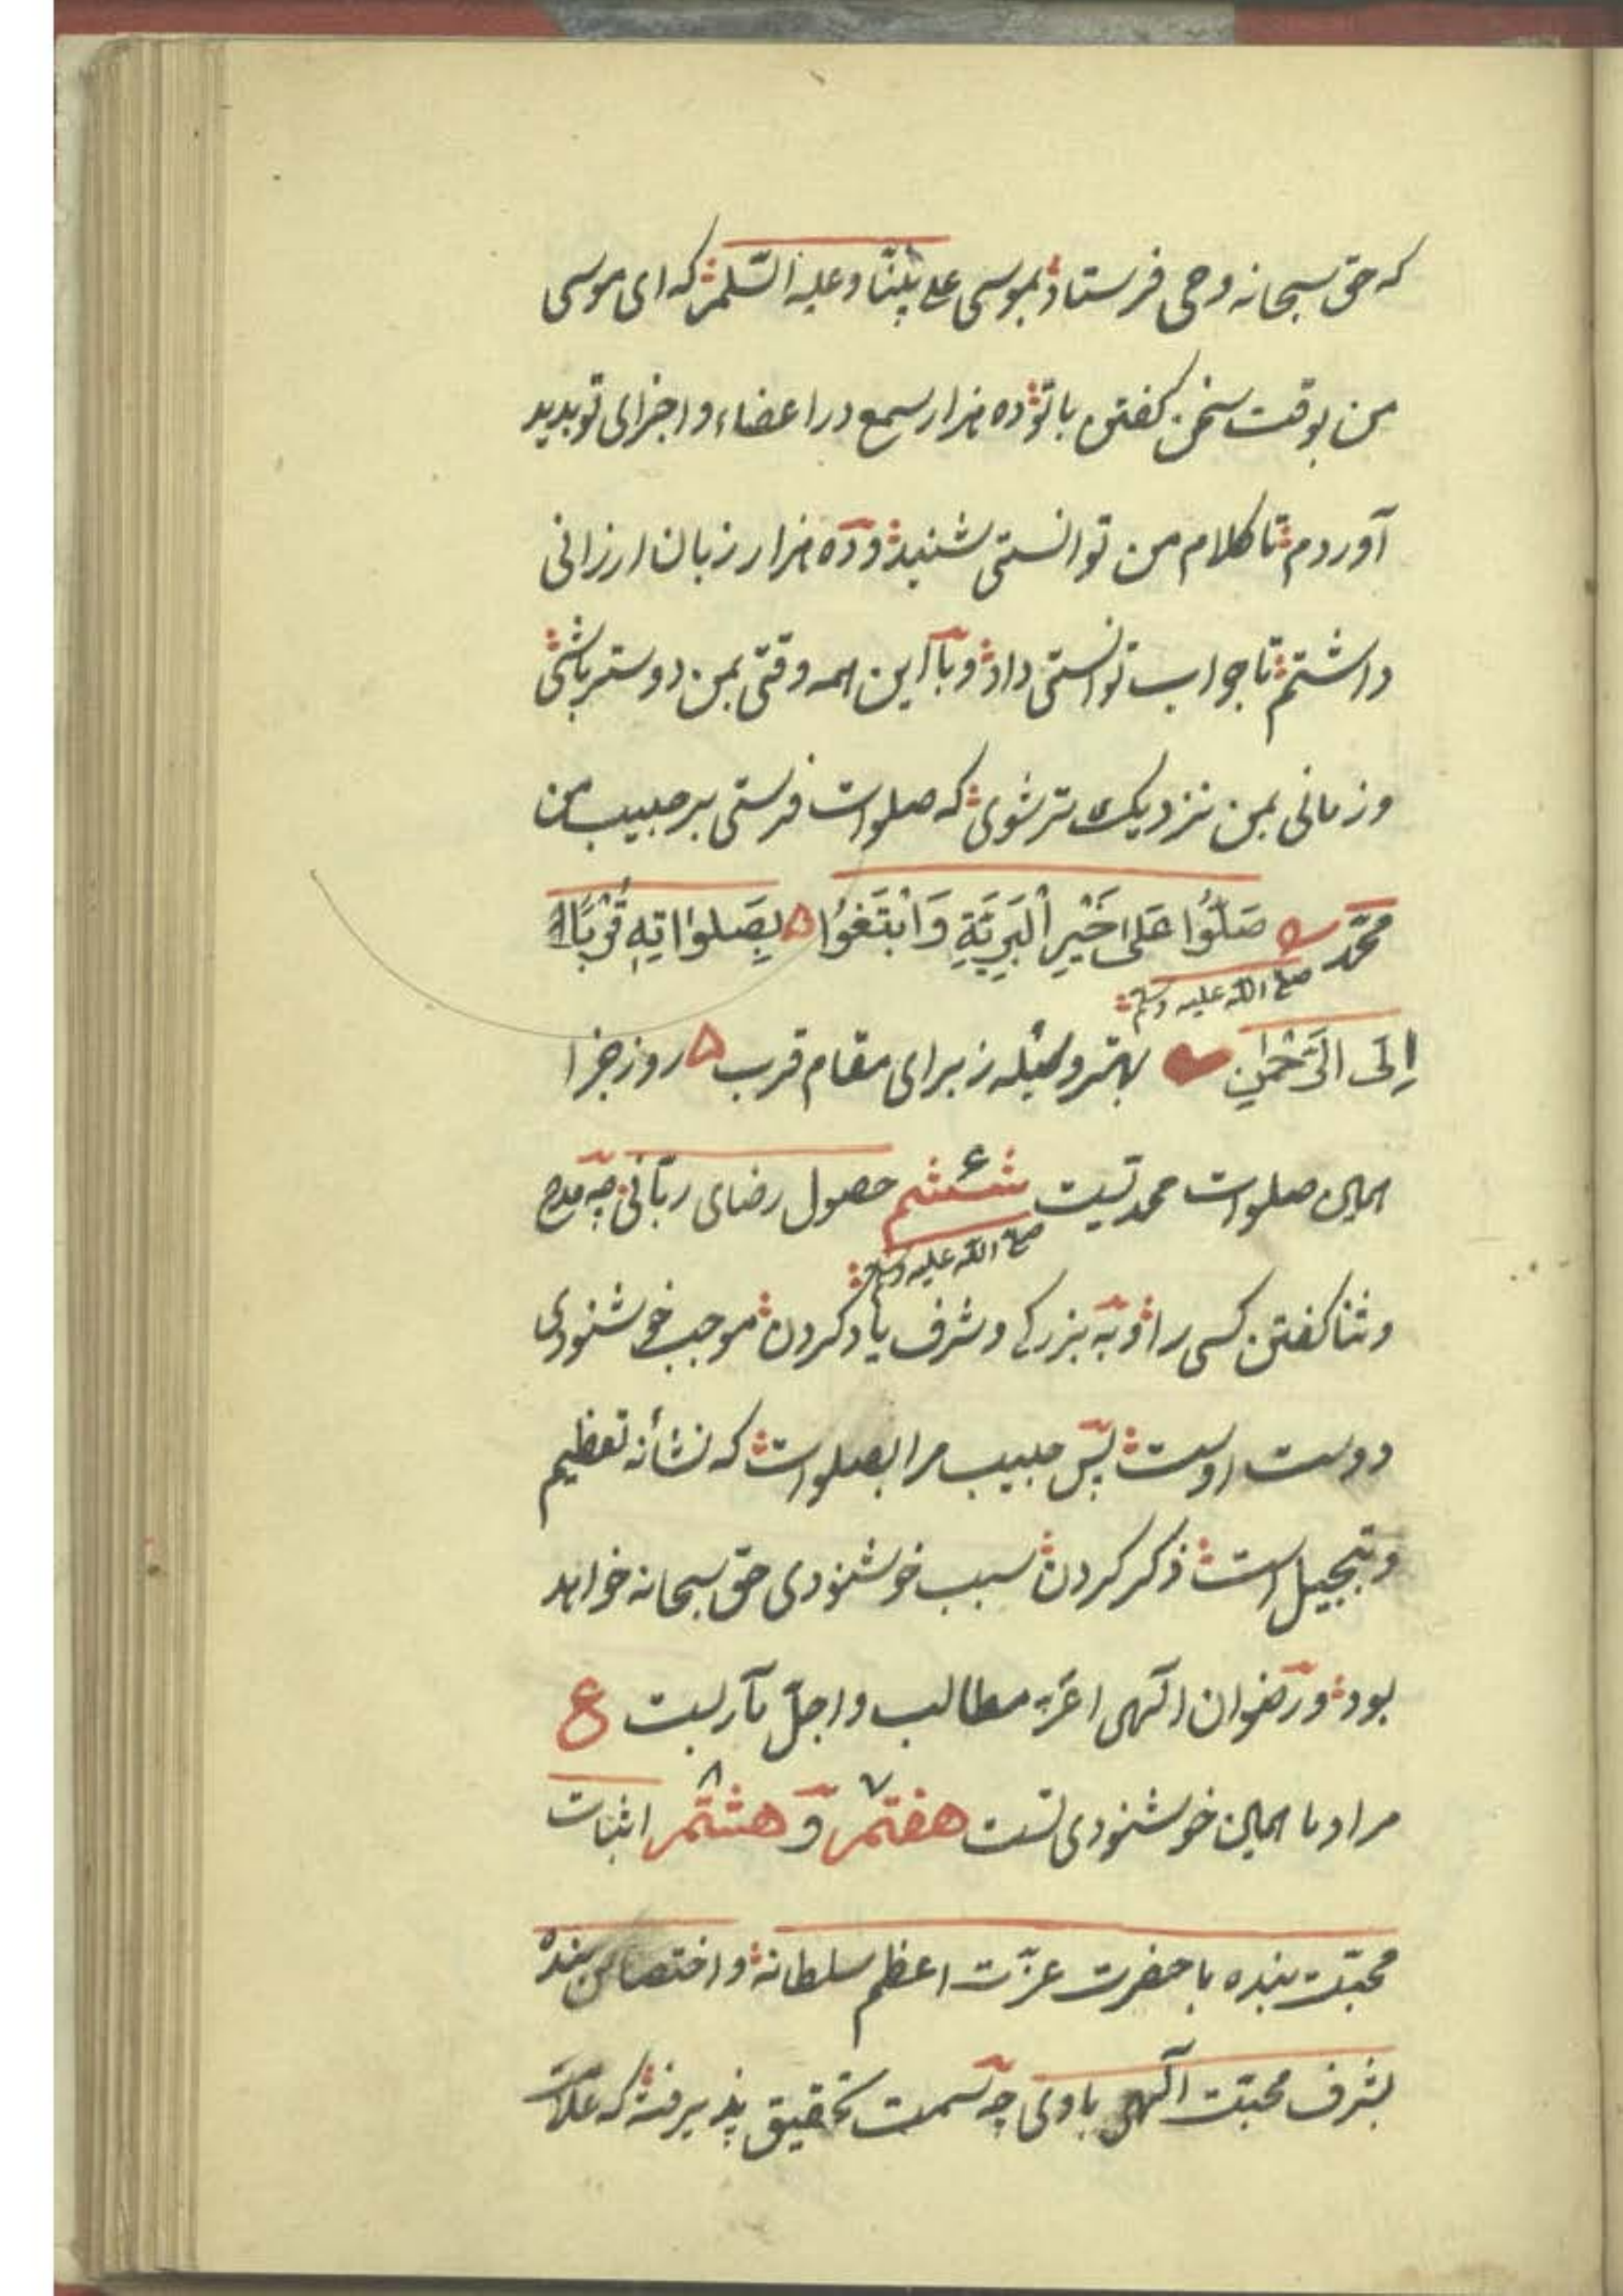 که حق سبحانه وحی فرستاد بموسی علی نبینا وعلیه السلم که ای موسی
من بوقت سخن کفتن باتو ده هزار سمع در اعضاء و اجزای تو بدید
آوردم تا کلام من توانستی شنید و ده هزار زبان ارزانی
داشتم تا جواب توانستی داد و با این همه وقتی بمن دوستر باشی
و زمانی بمن نزدیک تر شوی که صلوات فرستی بر حبیب من
محمّد صَلُّوا عَلیٰ خَیْرِ الْبَرِیَّةِ وَابْتَغُوا بِصَلوٰاتِهِ قُرْبًا
صلی الله علیه وسلم
اِلَی الرَّحْمٰنِ بهتر وسیله ز برای مقام قرب روز جزا
همان صلوات محمدتست ششم ۶ حصول رضای ربّانی چه مدح
صلی الله علیه وسلم
و ثنا کفتن کسی را و به بزرکی و شرف یاد کردن موجب خوشنودی
دوست اوست پس حبیب مرا بصلوات که نشانه تعظیم
و تبجیل است ذکر کردن سبب خوشنودی حق سبحانه خواهد
بود و رضوان الهی اعزّ مطالب و اجلّ مآربست ع
مراد ما همان خوشنودی تست هفتم ۷ و هشتم ۸ اثبات
محبّت بنده با حضرت عزّت اعظم سلطانه و اختصاص بنده
بشرف محبّت الهی باوی چه سمت تحقیق پذیرفته که علامت